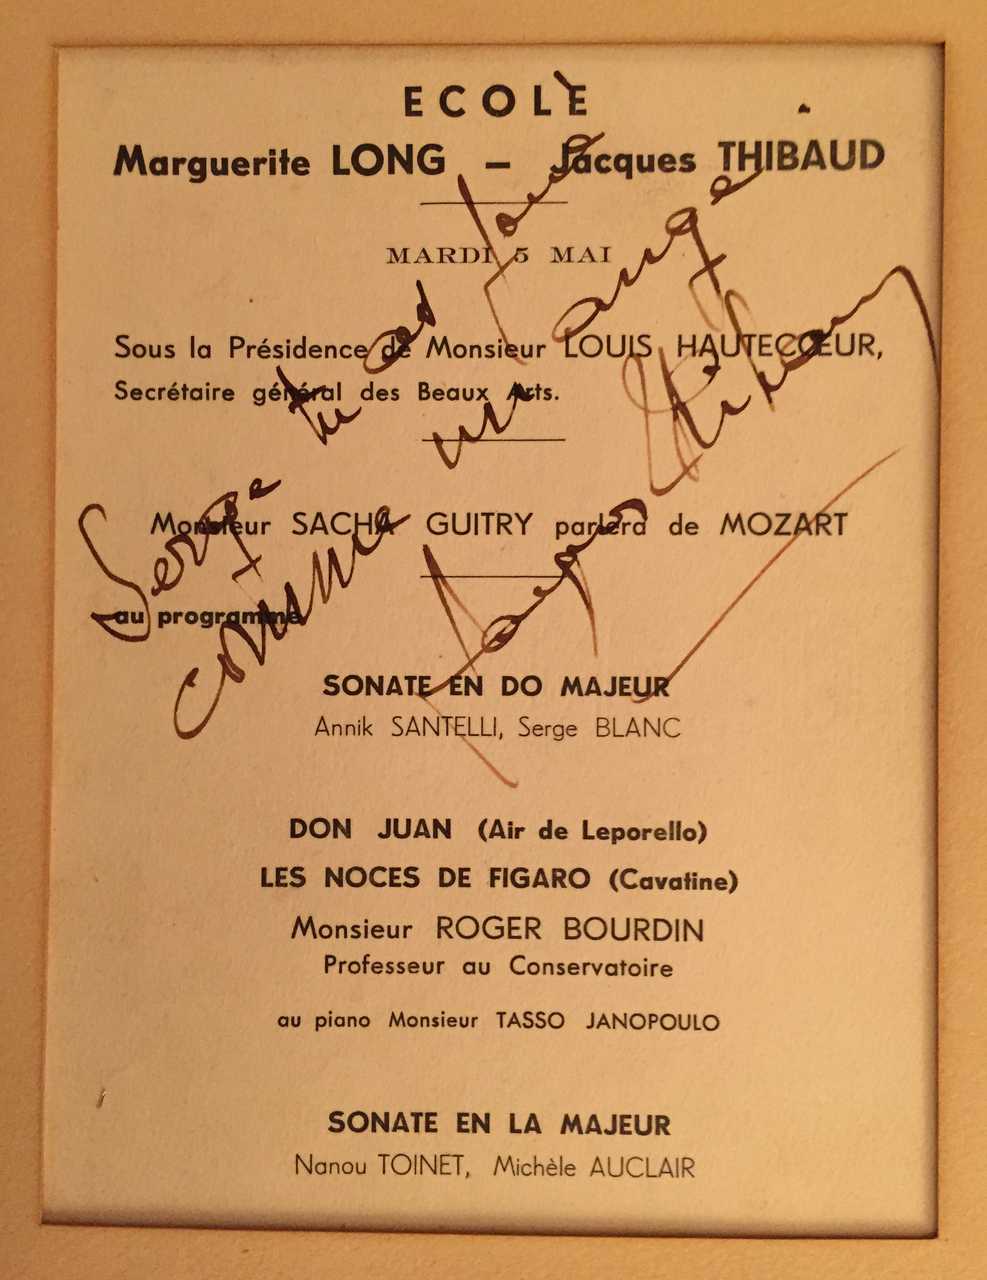 ECOLE
Marguerite LONG – Jacques THIBAUD
MARDI 5 MAI
Sous la Présidence de Monsieur LOUIS HAUTECŒUR,
Secrétaire général des Beaux Arts.
Monsieur SACHA GUITRY parlera de MOZART
au programme
SONATE EN DO MAJEUR
Annik SANTELLI, Serge BLANC
DON JUAN (Air de Leporello)
LES NOCES DE FIGARO (Cavatine)
Monsieur ROGER BOURDIN
Professeur au Conservatoire
au piano Monsieur TASSO JANOPOULO
SONATE EN LA MAJEUR
Nanou TOINET, Michèle AUCLAIR
Serge tu as joué
comme un ange
Jacques Thibaud